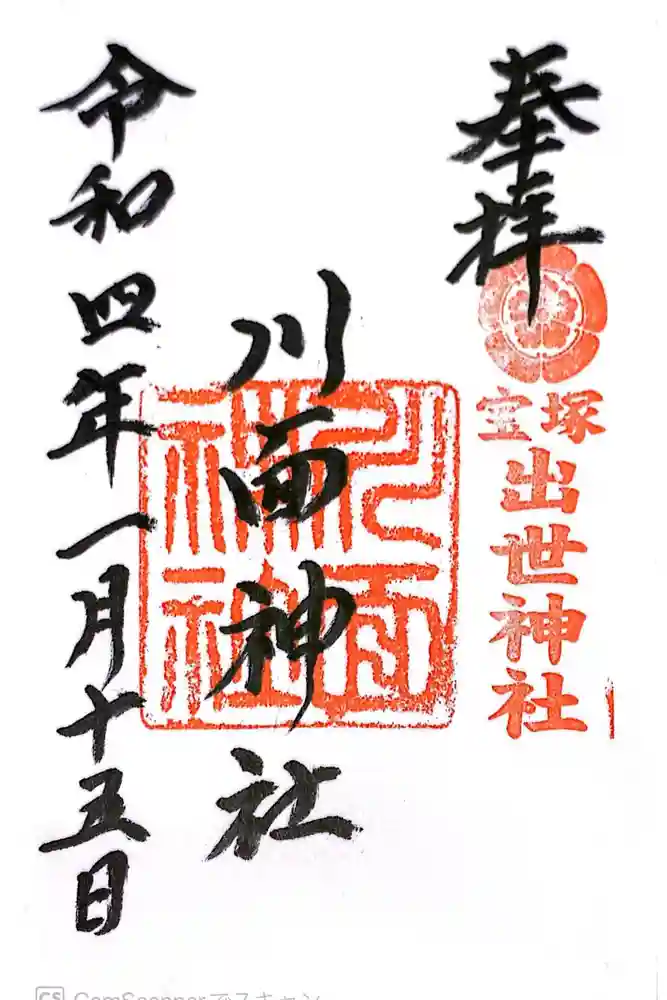 奉拝
宝塚
出世神社
川面神社
川面神社
令和四年一月十五日
CS CamScannerでスキャン